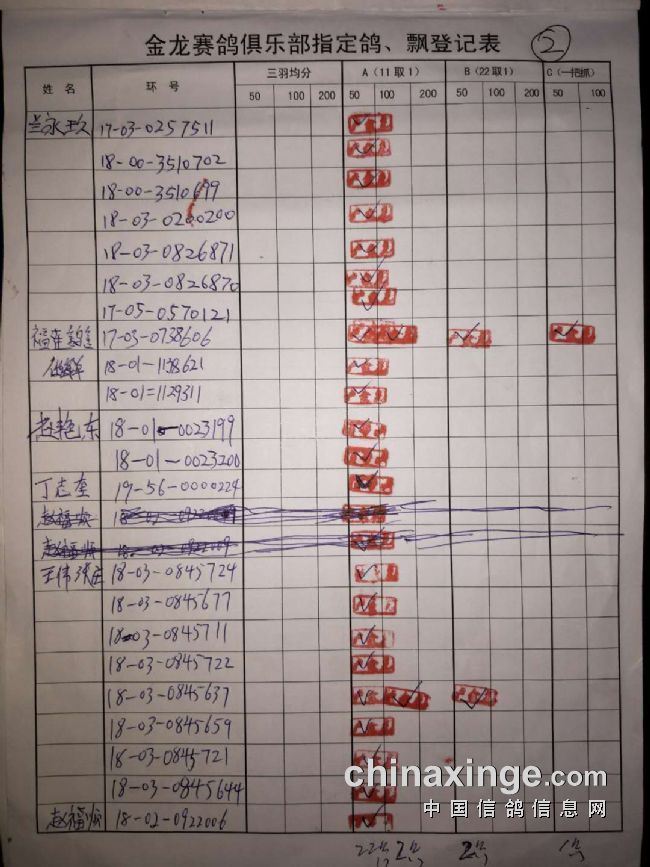 金龙赛鸽俱乐部指定鸽、飘登记表 ②
姓名 环号 三羽均分 A(11取1) B(22取1) C(一把抓)
50 100 200 50 100 200 50 100 50 100
兰永玖 17-03-0257511
18-00-3510702
18-00-3510699
18-03-0200200
18-03-0826871
18-03-0826870
17-05-0570121
17-03-0738606
18-01-1138621
18-01=1129311
赵艳东 18-01-0023199
18-01-0023200
丁志奎 19-56-0000224
赵福
赵福
王伟 18-03-0845724
18-03-0845677
18-03-0845711
18-03-0845722
18-03-0845637
18-03-0845659
18-03-0845721
18-03-0845644
赵福 18-02-0922006
chinaxinge.com
中国信鸽信息网